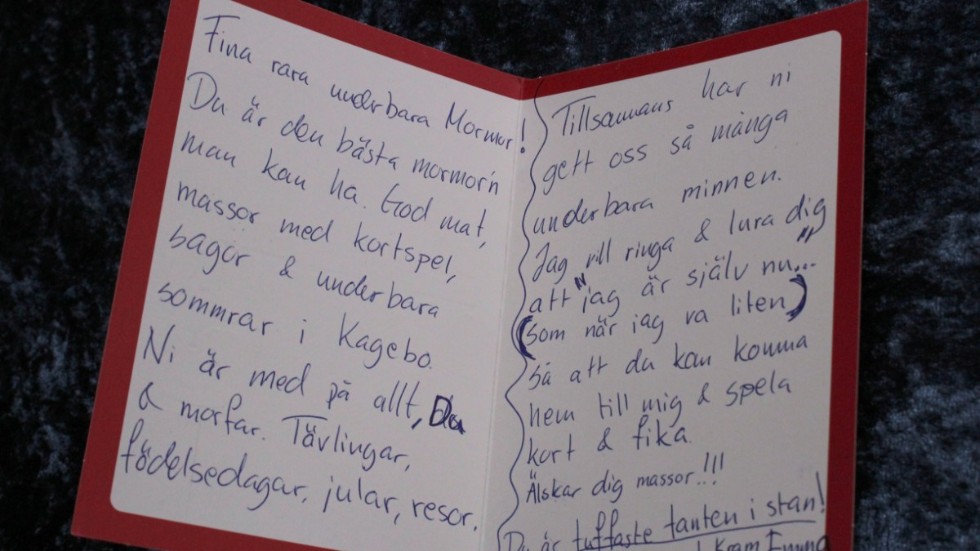 Fina rara underbara Mormor!
Du är den bästa mormor'n
man kan ha. God mat,
massor med kortspel,
sagor & underbara
sommrar i Kagebo.
Ni är med på allt, Du
& morfar. Tävlingar,
födelsedagar, jular, resor.
Tillsammans har ni
gett oss så många
underbara minnen.
Jag vill ringa & lura dig
att "jag är själv nu..."
(som när jag va liten)
så att du kan komma
hem till mig & spela
kort & fika.
Älskar dig massor!!!
Du är tuffaste tanten i stan!
Kram Emma